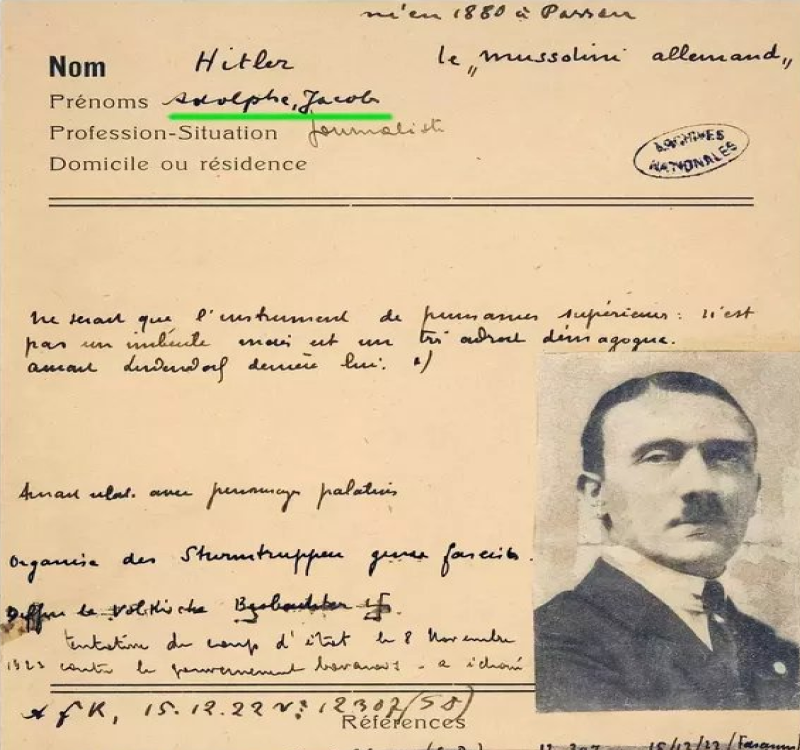 né en 1880 à Passau
Nom Hitler le „mussolini allemand„
Prénoms Adolphe, Jacob
Profession-Situation Journaliste
ARCHIVES
NATIONALES
Domicile ou résidence
ne serait que l'instrument de puissances supérieures : n'est
pas un imbécile mais est un très adroit démagogue.
aurait Ludendorf derrière lui.
Aurait avec personnages palatins
Organise des Sturmtruppen genre fascist.
le Volkische Beobachter 卐.
tentative du coup d'état le 8 Novembre
1923 contre le gouvernement bavarois - a échoué
15.12.22 12307
Références